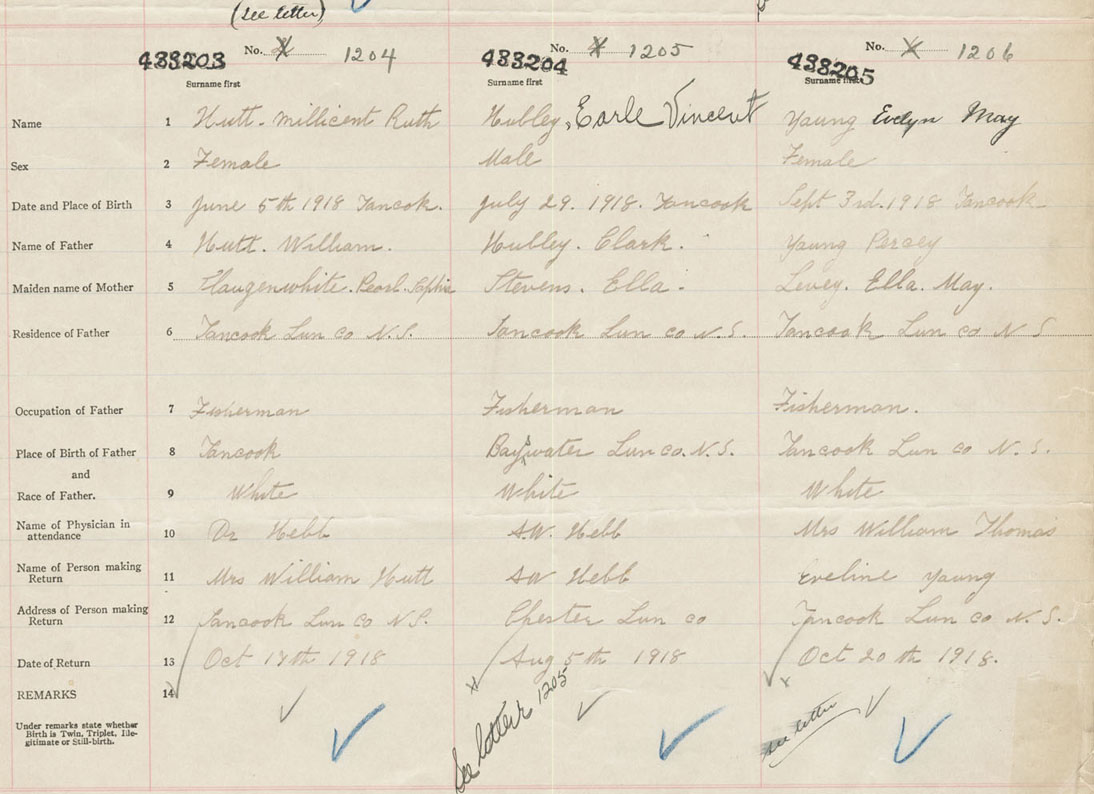 (See letter)
No. 1204 No. 1205 No. 1206
483203 483204 438205
Surname first Surname first Surname first
Name 1 Hutt. Millicent Ruth Hubley, Earle Vincent Young Evelyn May
Sex 2 Female Male Female
Date and Place of Birth 3 June 5th 1918 Tancook. July 29. 1918. Tancook Sept 3rd. 1918 Tancook
Name of Father 4 Hutt. William. Hubley. Clark. Young Percey
Maiden name of Mother 5 Haugenwhite. Pearl. Sophie Stevens. Ella. Levey. Ella. May.
Residence of Father 6 Tancook Lun co N.S. Tancook Lun co N.S. Tancook Lun co N S
Occupation of Father 7 Fisherman Fisherman Fisherman.
Place of Birth of Father 8 Tancook Bayswater Lun co. N.S. Tancook Lun co N.S.
and
Race of Father. 9 White White White
Name of Physician in attendance 10 Dr Hebb A.W. Hebb Mrs William Thomas
Name of Person making Return 11 Mrs William Hutt AW Hebb Eveline Young
Address of Person making Return 12 Tancook Lun co N.S. Chester Lun co Tancook Lun co N.S.
Date of Return 13 Oct 1918 Aug 5th 1918 Oct 20th 1918.
REMARKS 14
Under remarks state whether
Birth is Twin, Triplet, Ille-
gitimate or Still-birth.
See letter 1205
see letter